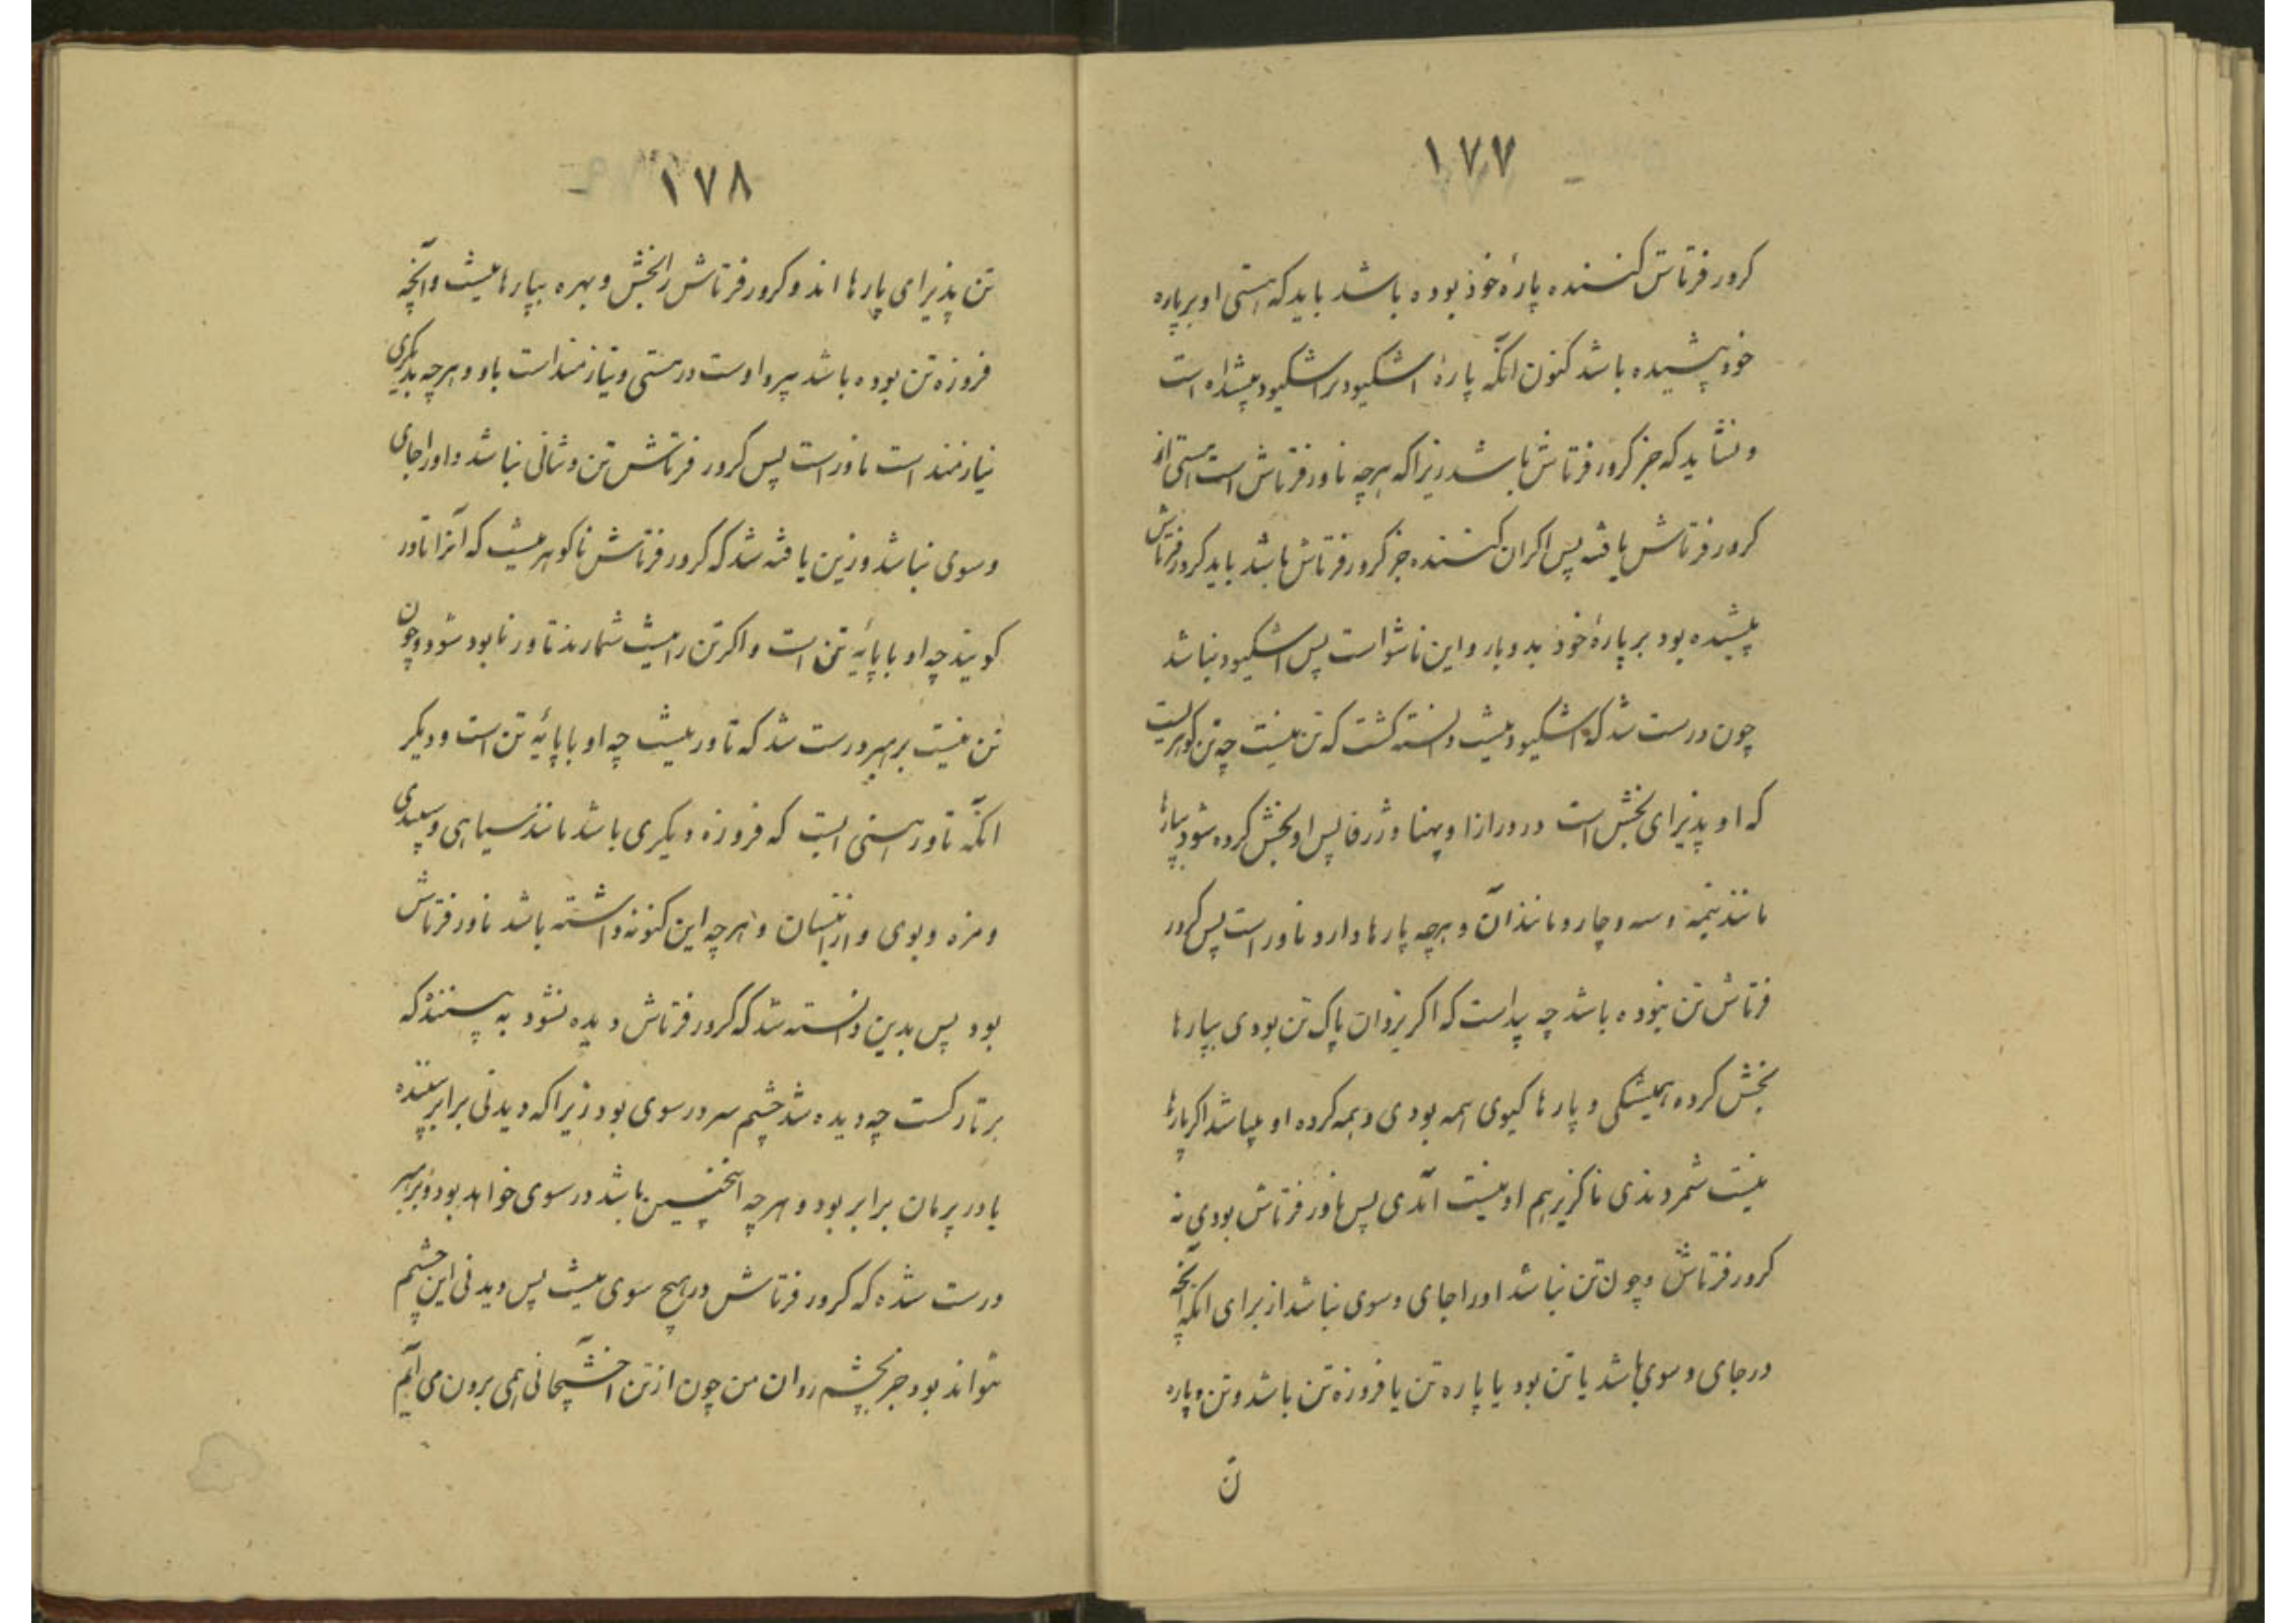 ۱۷۷
کرور فرتاش کننده پارهٔ خود بوده باشد باید که هستی او بر پاره
خود پیشیده باشد کنون انکه پارهٔ اشکیود بر اشکیود پیشداه است
و نشاید که جز کرور فرتاش باشد زیراکه هرچه ناور فرتاش است هستی از
کرور فرتاش یافته پس اکر ان کننده جز کرور فرتاش باشد باید کرور فرتاش
پیشیده بود بر پارهٔ خود بدو بار و این ناشو است پس اشکیود نباشد
چون درست شد که اشکیود نیست دانسته کشت که تن نیست چه تن کوهریست
که او پذیرای بخش است در درازا و پهنا و ژرفا پس او بخش کرده شود بپارها
مانند نیمه و سه و چار و مانند آن و هرچه پارها دارد ناور است پس کرور
فرتاش تن نبوده باشد چه پیداست که اکر یزدان پاک تن بودی بپارها
بخش کرده همیشکی و پارها کیوی همه بودی و همه کرده او بپاشد اکر پارها
نیست شمردندی ناکزیر هم او نیست آمدی پس ناور فرتاش بودی نه
کرور فرتاش و چون تن نباشد اورا جای و سوی نباشد از برای انکه انچه
در جای و سوی باشد یا تن بود یا پاره تن یا فروزه تن باشد و تن و پاره
تن
۱۷۸
تن پذیرای پارها اند و کرور فرتاش را بخش و بهره بپارها نیست و آنچه
فروزه تن بوده باشد پیرو اوست در هستی و نیازمند است باو و هرچه بدیکری
نیازمند است ناور است پس کرور فرتاش تن و تنانی نباشد و اورا جای
و سوی نباشد و زین یافته شد که کرور فرتاش نا کوهریست که آنرا تاور
کویند چه او با پایهٔ تن است و اکر تن را نیست شمارند تاور نابود شود و چون
تن نیست بر هبر درست شد که تاور نیست چه او با پایهٔ تن است و دیکر
انکه تاور هستی ایست که فروزه دیکری باشد مانند سیاهی و سپیدی
و مزه و بوی و از اینسان و هرچه این کنونه داشته باشد ناور فرتاش
بود پس بدین دانسته شد که کرور فرتاش دیده نشود به پسنندکه
بر تارکست چه دیده شد چشم سر در سوی بود زیراکه دیدنی برابر بیننده
یا در پرمان برابر بود و هرچه اینچنین باشد در سوی خواهد بود و بر هبر
درست شده که کرور فرتاش در هیچ سوی نیست پس دیدنی این چشم
نتواند بود جز بچشم روان من چون از تن اخشیجانی همی برون می آیم